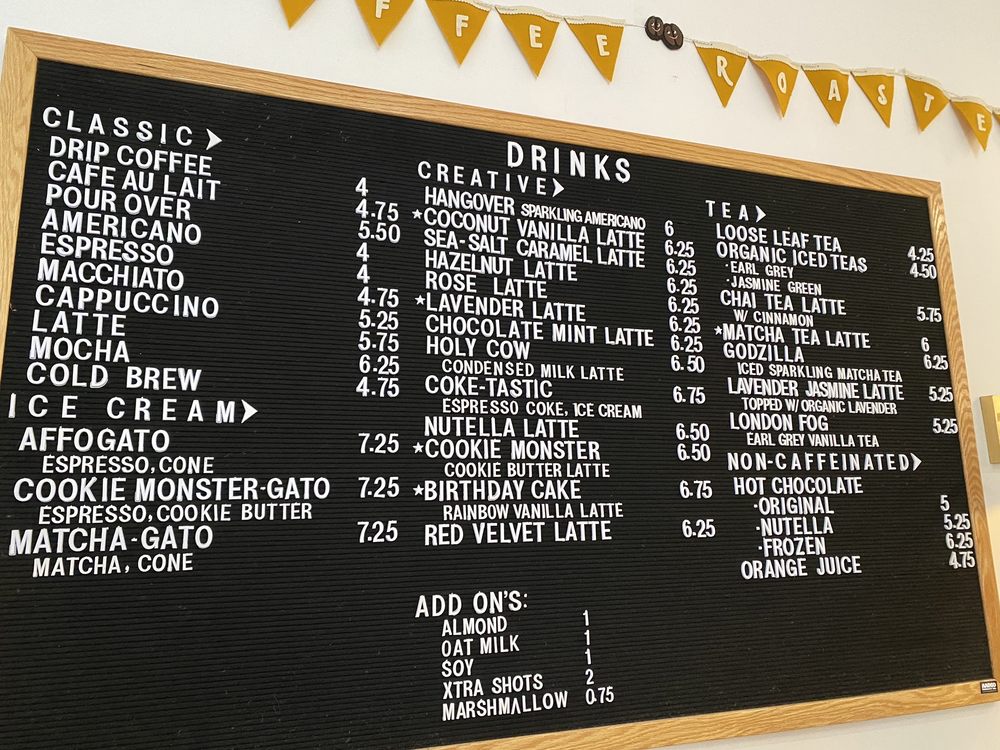 F F E E R O A S T E
DRINKS
CLASSIC
DRIP COFFEE 4
CAFE AU LAIT 4.75
POUR OVER 5.50
AMERICANO 4
ESPRESSO 4
MACCHIATO 4.75
CAPPUCCINO 5.25
LATTE 5.75
MOCHA 6.25
COLD BREW 4.75
ICE CREAM
AFFOGATO 7.25
ESPRESSO, CONE
COOKIE MONSTER-GATO 7.25
ESPRESSO, COOKIE BUTTER
MATCHA-GATO 7.25
MATCHA, CONE
CREATIVE
HANGOVER SPARKLING AMERICANO 6
★COCONUT VANILLA LATTE 6.25
SEA-SALT CARAMEL LATTE 6.25
HAZELNUT LATTE 6.25
ROSE LATTE 6.25
★LAVENDER LATTE 6.25
CHOCOLATE MINT LATTE 6.25
HOLY COW 6.50
CONDENSED MILK LATTE
COKE-TASTIC 6.75
ESPRESSO COKE, ICE CREAM
NUTELLA LATTE 6.50
★COOKIE MONSTER 6.50
COOKIE BUTTER LATTE
★BIRTHDAY CAKE 6.75
RAINBOW VANILLA LATTE
RED VELVET LATTE 6.25
ADD ON'S:
ALMOND 1
OAT MILK 1
SOY 1
XTRA SHOTS 2
MARSHMALLOW 0.75
TEA
LOOSE LEAF TEA 4.25
ORGANIC ICED TEAS 4.50
·EARL GREY
·JASMINE GREEN
CHAI TEA LATTE 5.75
W/ CINNAMON
★MATCHA TEA LATTE 6
GODZILLA 6.25
ICED SPARKLING MATCHA TEA
LAVENDER JASMINE LATTE 5.25
TOPPED W/ ORGANIC LAVENDER
LONDON FOG 5.25
EARL GREY VANILLA TEA
NON-CAFFEINATED
HOT CHOCOLATE
·ORIGINAL 5
·NUTELLA 5.25
·FROZEN 6.25
ORANGE JUICE 4.75